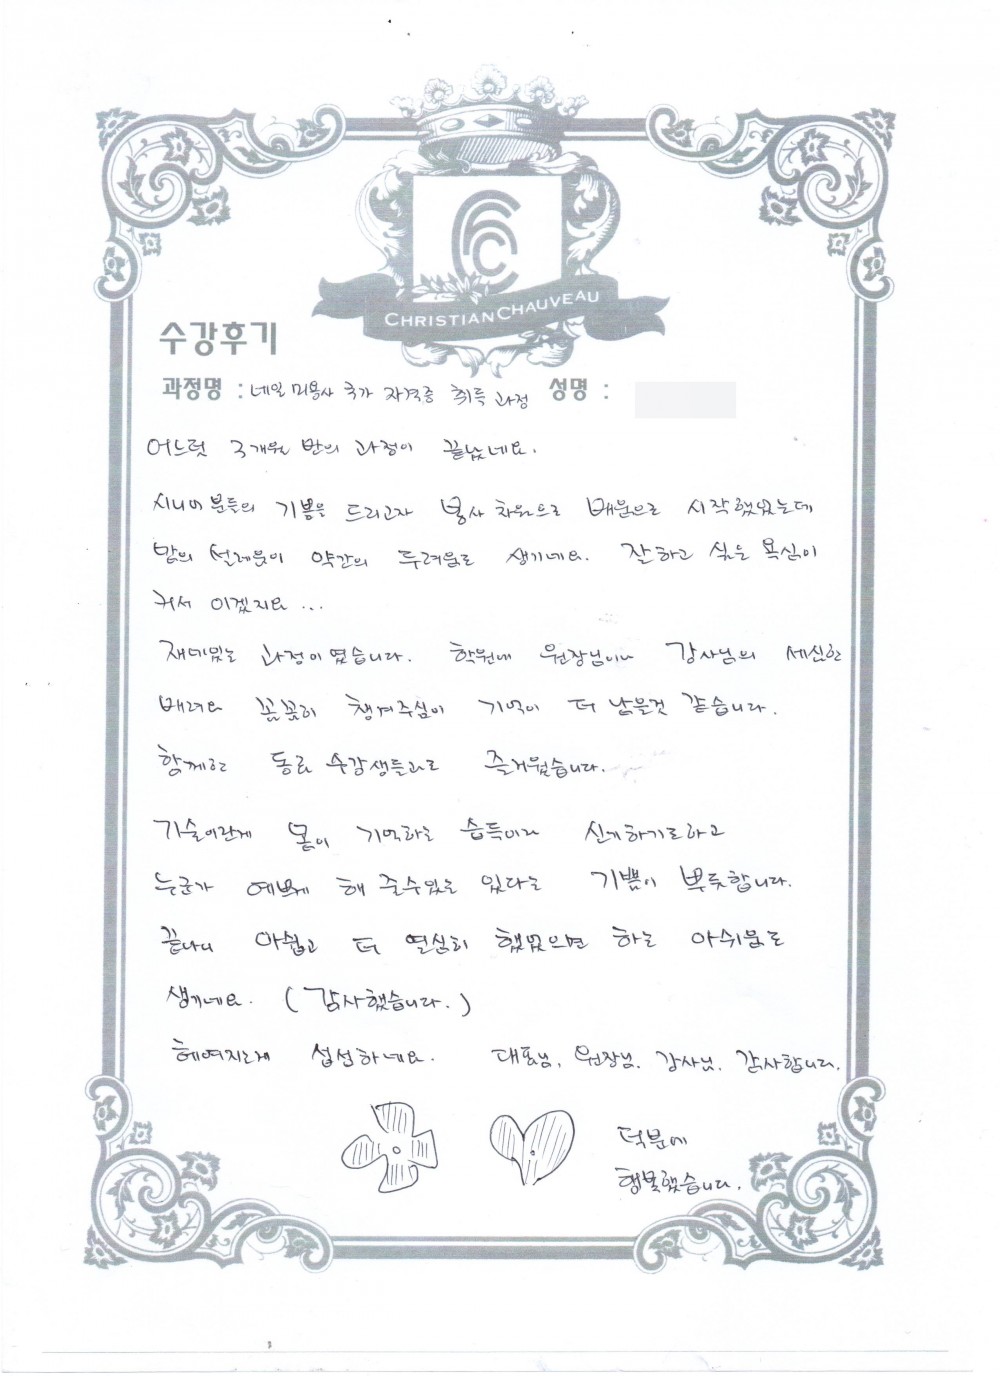 CHRISTIAN CHAUVEAU
수강후기
과정명 : 네일 미용사 국가 자격증 취득 과정 성명 :
어느덧 3개월 반의 과정이 끝났네요.
시니어 분들의 기쁨을 드리고자 봉사 차원으로 배움으로 시작했었는데
맘의 설레움이 약간의 두려움도 생기네요. 잘하고 싶은 욕심이
커서 이겠지요...
재미있는 과정이였습니다. 학원에 원장님이나 강사님의 세심한
배려와 꼼꼼히 챙겨주심이 기억이 더 남을것 같습니다.
함께한 동료 수강생들과도 즐거웠습니다.
기술이란게 몸이 기억하는 습득이라 신기하기도하고
누군가 예쁘게 해 줄수있는 있다는 기쁨이 뿌듯합니다.
끝나니 아쉽고 더 열심히 했었으면 하는 아쉬움도
생기네요. (감사했습니다.)
헤여지는게 섭섭하네요. 대표님, 원장님, 강사님, 감사합니다.
덕분에
행복했습니다.